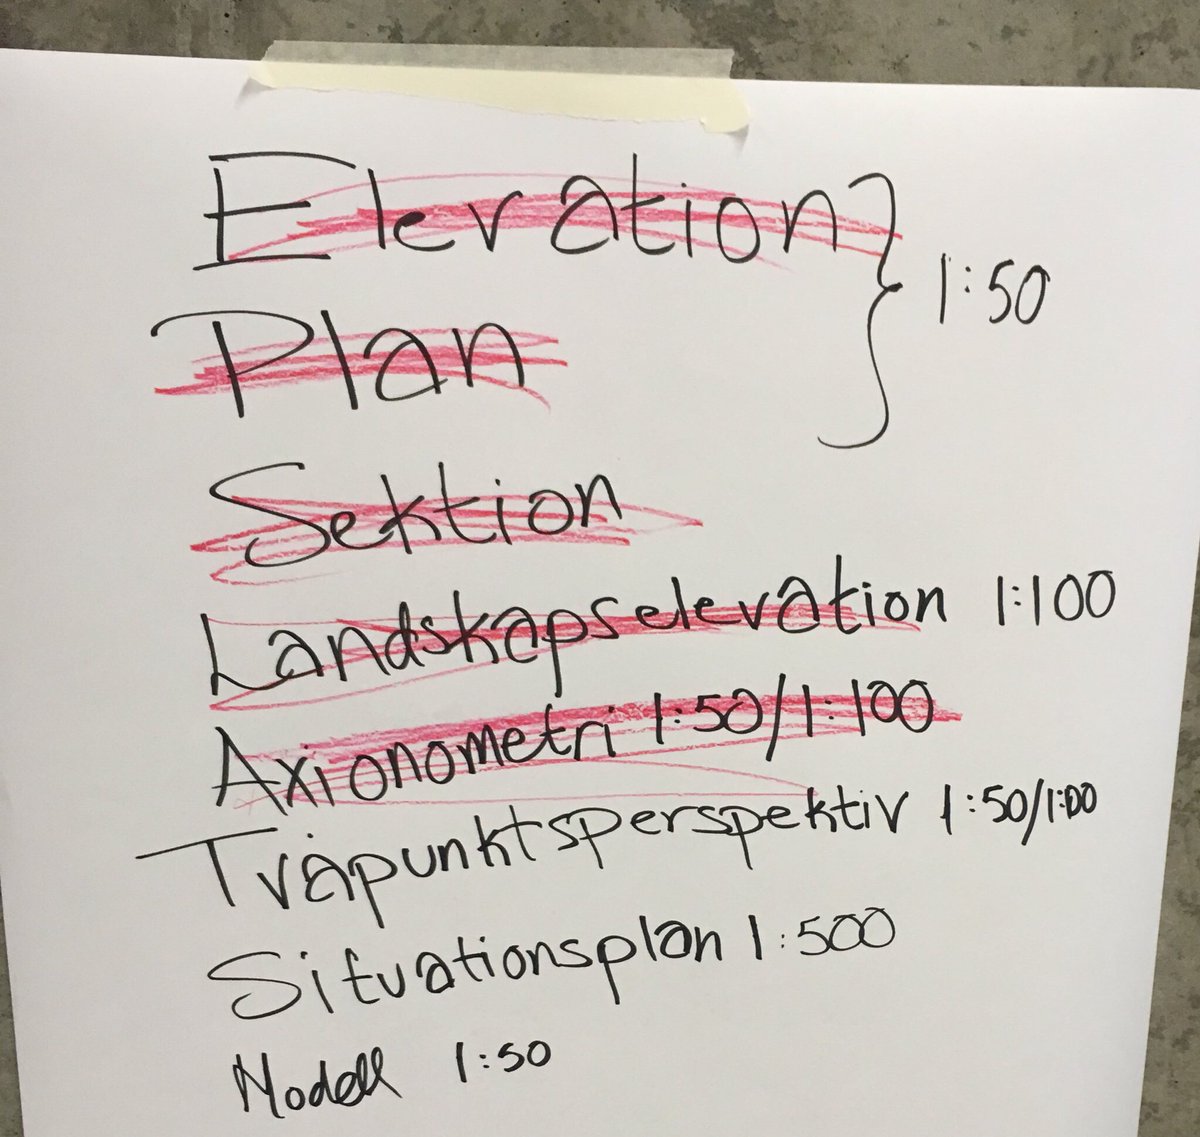 Elevation
Plan
1:50
Sektion
Landskapselevation 1:100
Axionometri 1:50/1:100
Tvåpunktsperspektiv 1:50/1:00
Situationsplan 1:500
Modell 1:50